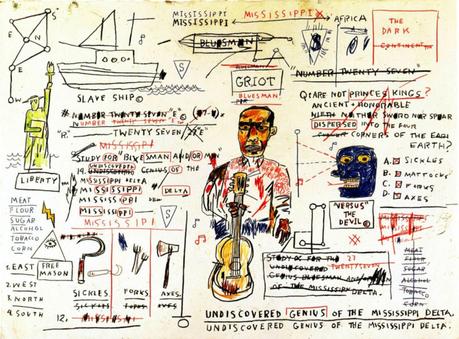 MISSISSIPPI MISSISSIPPI
MISSISSIPPI
AFRICA
THE
DARK
CONTINENT
BLUESMAN
S
N
E
W
GRIOT
BLUESMAN
"NUMBER TWENTY SEVEN"
SLAVE SHIP©
NUMBER TWENTY SEVEN "E"©
NUMBER TWENTY SEVEN "E"©
TWENTY SEVEN
"R."
MISSISSIPPI
Q: ARE NOT PRINCES KINGS?
ANCIENT + HONORABLE
NEITH NATHER SWORD NOR SPEAR
DISPERSED INTO THE FOUR
CORNERS OF THE EARL
EARTH?
STUDY FOR BLUESMAN AND/OR
UNDISCOVERED
GENIUS OF THE
MISSISSIPPI DELTA
MISSISSIPPI DELTA
MISSISSIPPI
MISSISSIPPI
MISSISSIPPI
LIBERTY
A. SICKLES
B. MATTOCKS
C. FORKS
D. AXES
"VERSUS"
THE DEVIL©
MEAT
FLOUR
SUGAR
ALCOHOL
TOBACCO
CORN
1. EAST
2. WEST
3. NORTH
4. SOUTH
FREE
MASON
SICKLES FORKS AXES.
SICKLES FORKS AXES.
12. MISSISSIPPI
STUDY OF FOR THE
UNDISCOVERED
GENIUS BLUESMAN
OF THE MISSISSIPPI DELTA.
27
TWENTYSEVEN
MEAT
FLOUR
SUGAR
ALCOHOL
TOBACCO
CORN
UNDISCOVERED GENIUS OF THE MISSISSIPPI DELTA.
UNDISCOVERED GENIUS OF THE MISSISSIPPI DELTA.